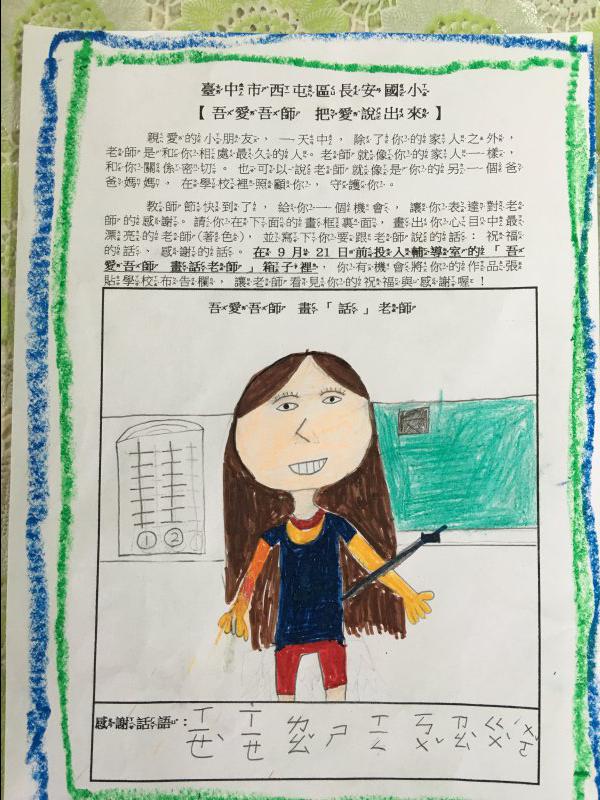 臺中市西屯區長安國小
【吾愛吾師 把愛說出來】
親愛的小朋友，一天中，除了你的家人之外，
老師是和你相處最久的人。老師就像你的家人一樣，
和你關係密切。也可以說老師就像是你的另一個爸
爸媽媽，在學校裡照顧你，守護你。
教師節快到了，給你一個機會，讓你表達對老
師的感謝。請你在下面的畫框裏面，畫出你心目中最
漂亮的老師(著色)，並寫下你要跟老師說的話：祝福
的話、感謝的話。在9月21日前投入輔導室的「吾
愛吾師 畫話老師」箱子裡，你有機會將你的作品張
貼學校布告欄，讓老師看見你的祝福與感謝喔！
吾愛吾師 畫「話」老師
① ②
感謝話語：ㄒㄧㄝˋ ˙ㄒㄧㄝ ㄌㄠ ㄕ